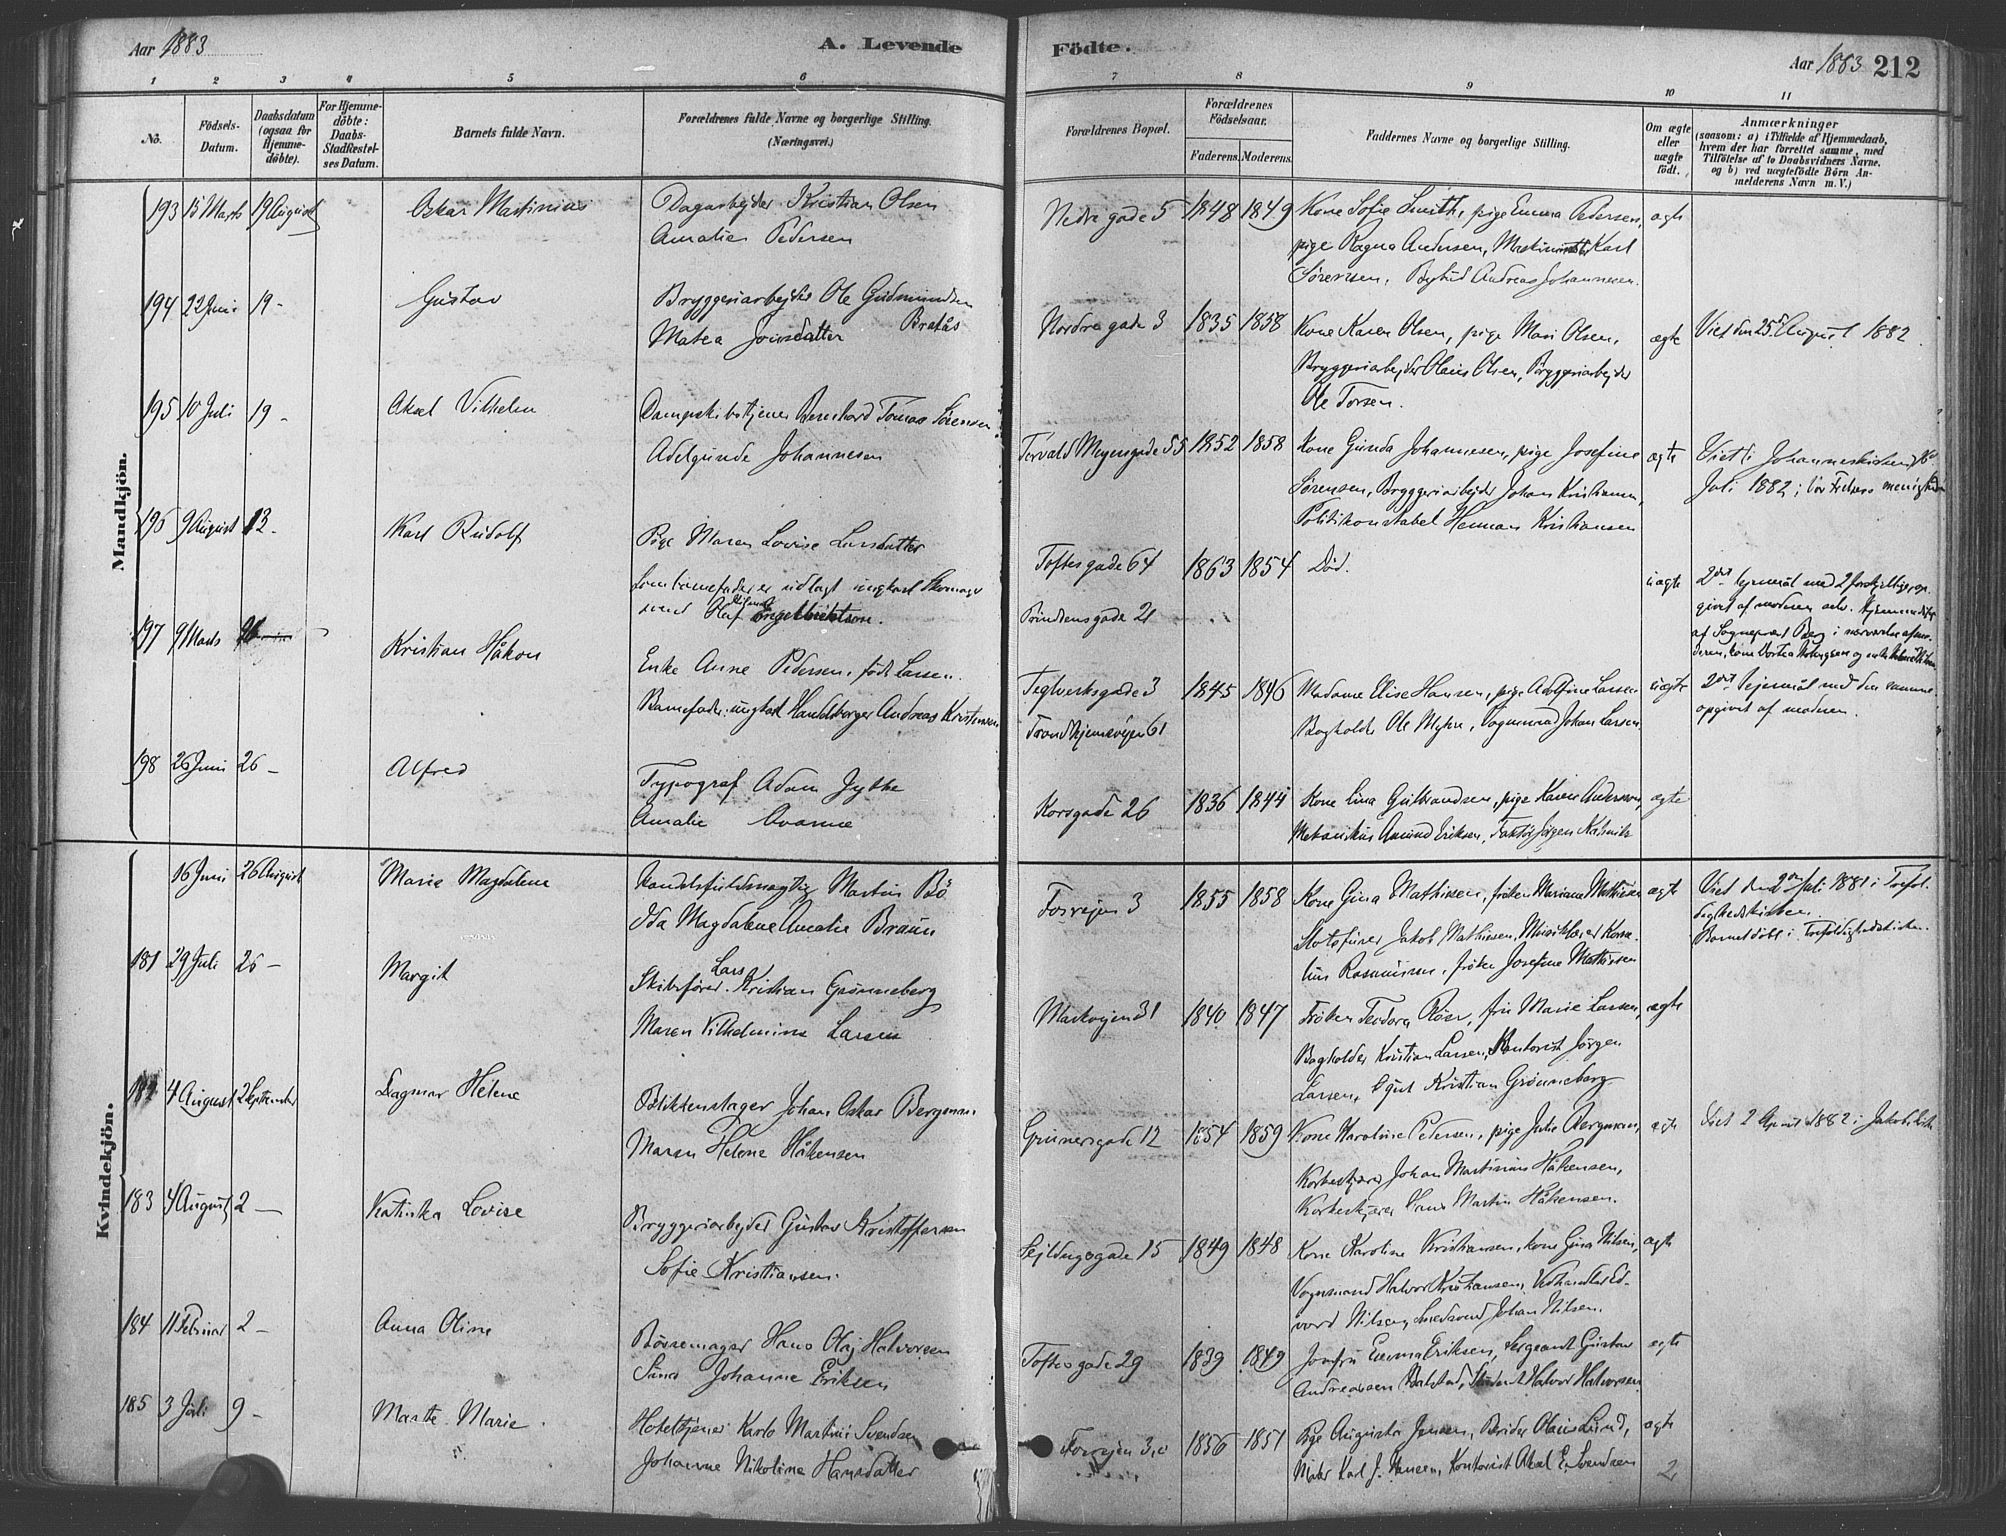 Aar 1883
A. Levende
Födte.
Aar 1883 212
1 2 3 4 5 6 7 8 9 10 11
No.
Födsels-Datum.
Daabsdatum (ogsaa for Hjemmedöbte).
For Hjemmedöbte: Daabs-Stadfæstelses Datum.
Barnets fulde Navn.
Forældrenes fulde Navne og borgerlige Stilling.
(Næringsvei.)
Forældrenes Bopæl.
Forældrenes Födselsaar.
Faderens. Moderens.
Faddernes Navne og borgerlige Stilling.
Om ægte eller uægte födt.
Anmærkninger
(saasom: a) i Tilfælde af Hjemmedaab, hvem der har forrettet samme, med Tilföielse af to Daabsvidners Navne, og b) ved uægtefödte Börn Anmelderens Navn m. V.)
Mandkjön.
193 15 Marts 19 August Oskar Martinius Dagarbejder Kristian Olsen
Amalie Pedersen
Nedregade 5 1848 1849 Kone Sofie Smith, pige Emma Pedersen, ægte
pige Ragna Andersen, Maskinist Karl
Sørensen, Bybud Andreas Johannesen.
194 22 Juni 19 - Gustav Bryggeriarbejder Ole Gudmundsen
Bratås
Matea Jonsdatter
Nordregade 3 1835 1858 Kone Karen Olsen, pige Mari Olsen, ægte Viet den 25 August 1882.
Bryggeriarbejder Olaus Olsen, Bryggeriarbejder
Ole Torsen.
195 10 Juli 19 - Aksel Vilhelm Dampskibstjener Bernhard Tomas Sörensen
Adelgunde Johannesen
Torvald Meyersgade 55 1852 1858 Kone Gunda Johannesen, pige Josefine ægte Viet i Johanneskirken
Sørensen, Bryggeriarbejder Johan Kristiansen, Juli 1882 i Vor Frelsers menighed
Politikonstabel Herman Kristiansen
196 9 August 13 - Karl Rudolf Pige Maren Lovise Larsdatter
som barnefader er udlagt ungkarl Skomager
svend Olaf Engelbrektsen.
Toftesgade 64 1863 1854 Død. uægte
Prindsensgade 21
2det lejermål med 2 forskjellige, op-
givet af moderen selv. Hjemmedøbt
af Sogneprest Berg i nærværelse af
197 9 Marts Kristian Håkon Enke Anne Pedersen, født Larsen.
Barnefader: ungkarl Handelsborger Andreas Kristensen
Teglverksgade 3 1845 1846 Madame Elise Hansen, pige Adolfine Larsen uægte 2det Lejermål med den samme
Trondhjemsvejen 61 Bogholder Ole Myhre, Vognmand Johan Larsen. opgivet af moderen.
198 26 Juni 26 - Alfred Typograf Adam Jythe
Amalie
Korsgade 26 1836 1844 Kone Lina Gulbrandsen, pige Karen Andersen, ægte
Mekanikus Amund Eriksen, Faktor Jørgen
Kvindekjön.
16 Juni 26 August Marie Magdalene Handelsfuldmægtig Martin Bö
Ida Magdalene Amalie Braun
Fosvejen 3 1855 1858 Kone Gina Mathisen, frøken Mariane Mathisen ægte Viet den 2den Juli 1881 i Trefol-
Slotsfurer Jakob Mathisen, Musiklærer Korne- dighedskirken.
lius Rasmussen, frøken Josefine Mathisen Barnet döbt i Trefoldighedskirken.
181 29 Juli 26 - Margit Skibsfører Lars Kristian Grønneberg
Maren Vilhelmine Larsen
Markvejen 31 1840 1847 Frøken Teodora, fru Marie Larsen, ægte
Bogholder Kristian Larsen, Kontorist Jørgen
Larsen, Kristian Grønneberg
182 4 August 2 September Dagmar Helene Blikkenslager Johan Oskar Bergman
Maren Helene Håkensen
Grünersgade 12 1854 1859 Kone Karoline Pedersen, pige Julie Bergman, ægte Viet 2 April 1882 i Jakobs Kirke
Johan Martinius Håkensen,
Hans Martin Håkensen.
183 4 August 2 - Katinka Lovise Bryggeriarbejder Gustav Kristoffersen
Sofie Kristiansen.
Sejldugsgade 15 1849 1848 Kone Karoline Kristiansen, kone Gina Nilsen, ægte
Vognmand Halvor Kristiansen, Vedhandler Ed-
vard Nilsen, Smedsvend Johan Nilsen.
184 11 Februar 2 - Anna Oline Børsemager Hans Olaj Halvorsen
Johanne Eriksen
Toftesgade 29 1839 1849 Jomfru Emma Eriksen, Sergeant Gustav ægte
Andreassen, Student Halvor Halvorsen
185 3 Juli 9 - Marte Marie Hoteltjener Karlo Martini Svendsen
Johanne Nikoline Hansdatter
Fosvejen 1856 1851 Pige Augusta Jensen, Olaus Lund, ægte
Maler Karl J. Hansen, Kontorist Aksel E. Svendsen
2